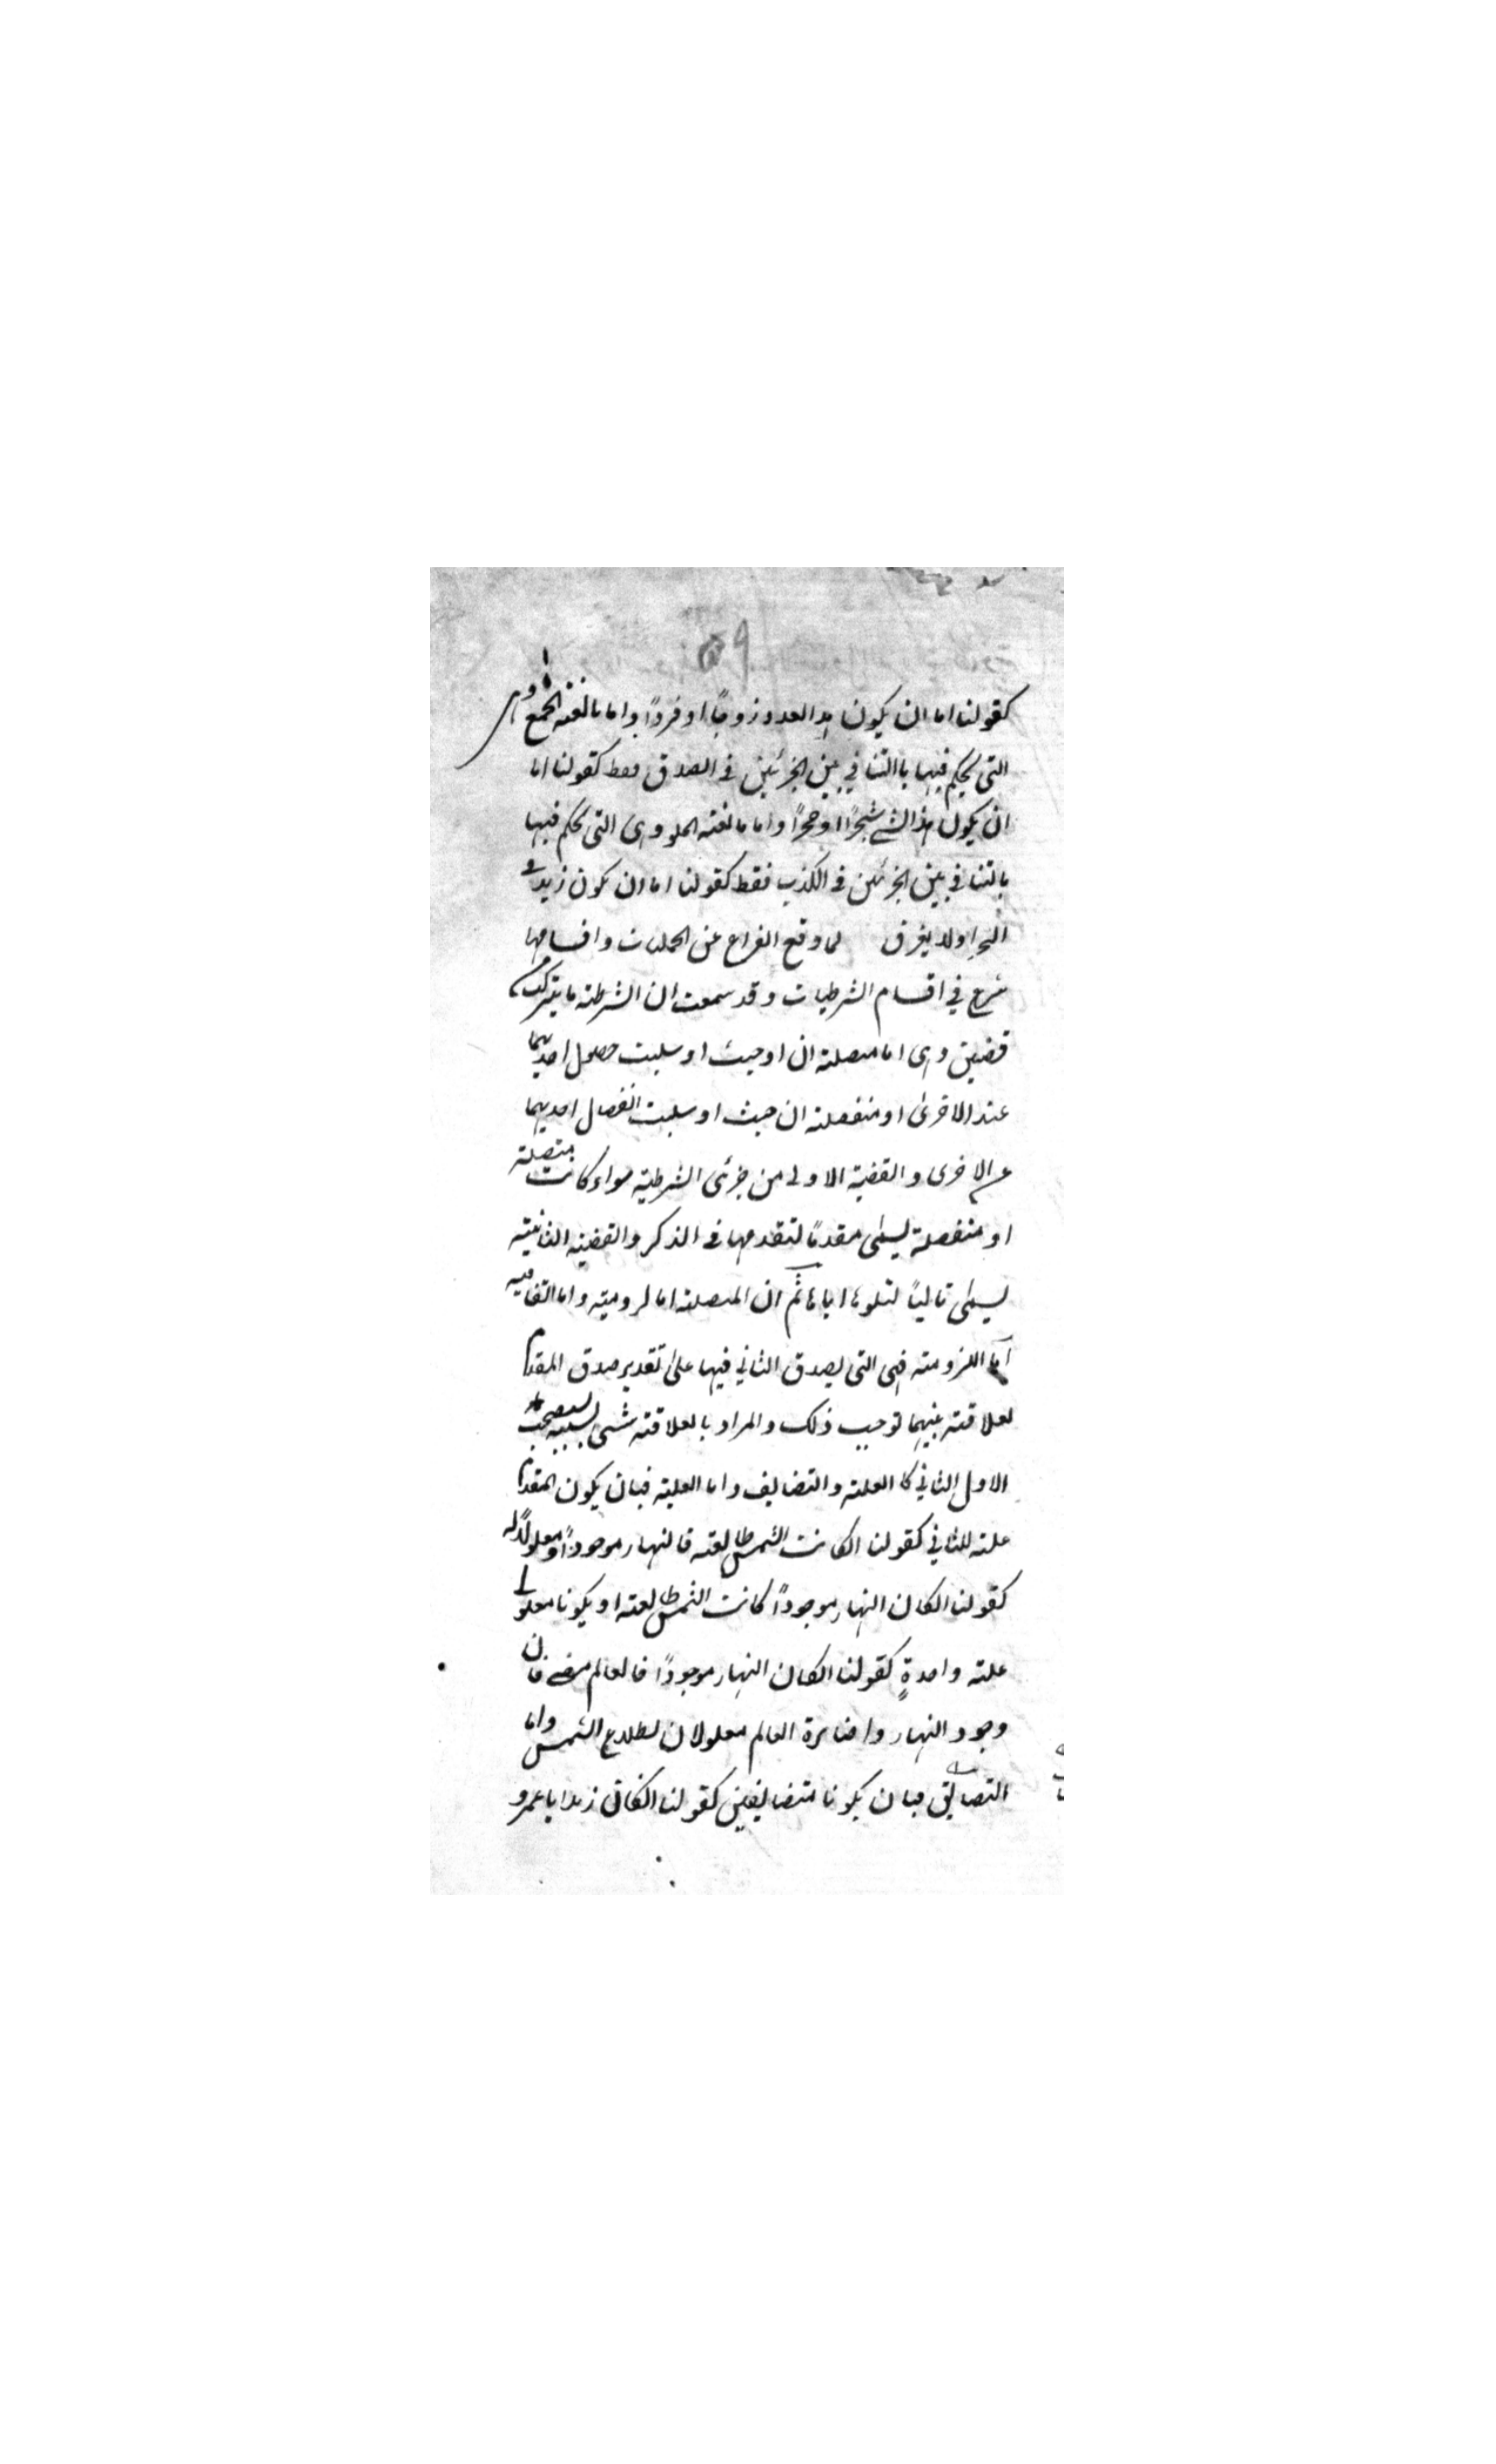 ٥٩
كقولنا اما ان يكون هذا العدد زوجًا او فردًا واما مانعة الجمع وهى
التى يحكم فيها باالتنافي بين الجزئين فى الصدق فقط كقولنا اما
ان يكون هذا الشئ شجرًا او حجرًا واما مانعة الخلو وهى التى يحكم فيها
بالتنافي بين الجزئين فى الكذب فقط كقولنا اما ان يكون زيد فى
البحر او لا يغرق لما وقع الفراغ عن الحمليات واقسامها
شرع في اقسام الشرطيات وقد سمعت ان الشرطية ما يتركب
قضيتين وهى اما متصلة ان اوجبت او سلبت حصول احديهما
عند الاخرى او منفصلة ان جبت او سلبت انفصال احديهما
عن الاخرى والقضية الاولى من جزئى الشرطية سواء كانت متصلة
او منفصلة يسمى مقدمًا لتقدمها فى الذكر والقضية الثانية
يسمى تاليًا لتلوها اياها ثم ان المتصلة اما لزومية واما اتفاقية
اما اللزومية فهى التى يصدق الثاني فيها على تقدير صدق المقدم
لعلاقة بينهما توجب ذلك والمراد بالعلاقة شئ بسببه يستصحب
الاول الثاني كا العلية والتضايف واما العلية فبان يكون المقدم
علة للثاني كقولنا انكانت الشمس طالعة فالنهار موجودًا او معلولًا له
كقولنا انكان النهار موجودًا كانت الشمس طالعة او يكونا معلولا
علة واحدةٍ كقولنا انكان النهار موجودًا فالعالم مضئ فان
وجود النهار واضاءة العالم معلولان لطلوع الشمس واما
التضايف فبان يكونا متضايفين كقولنا انكان زيد ابا عمرو